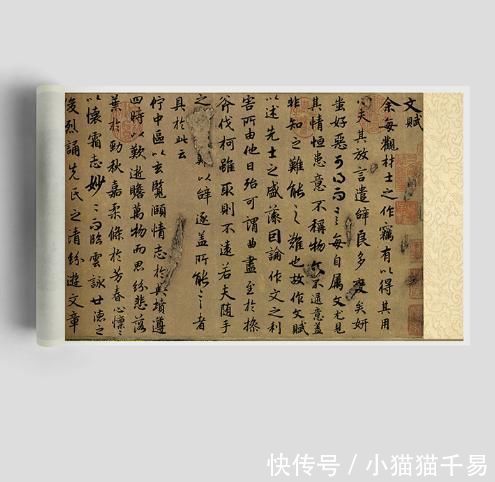 文賦
余每觀材士之作竊有以得其用
心夫其放言遣辭良多變矣妍
蚩好惡可得而言每自属文尤見
其情恒患意不稱物文不逮意盖
非知之難能之難也故作文賦
以述先士之盛藻因論作文之利
害所由他日殆可謂曲盡至於操
斧伐柯雖取則不遠若夫随手
之難以辭逐盖所能言者
具於此云
佇中區以玄覽頤情志於典墳遵
四時以歎逝瞻萬物而思紛悲落
葉於勁秋嘉柔條於芳春心懍懍
以懷霜志妙妙而臨雲詠世德之
俊烈誦先民之清芬遊文章
快传号／小猫猫千易